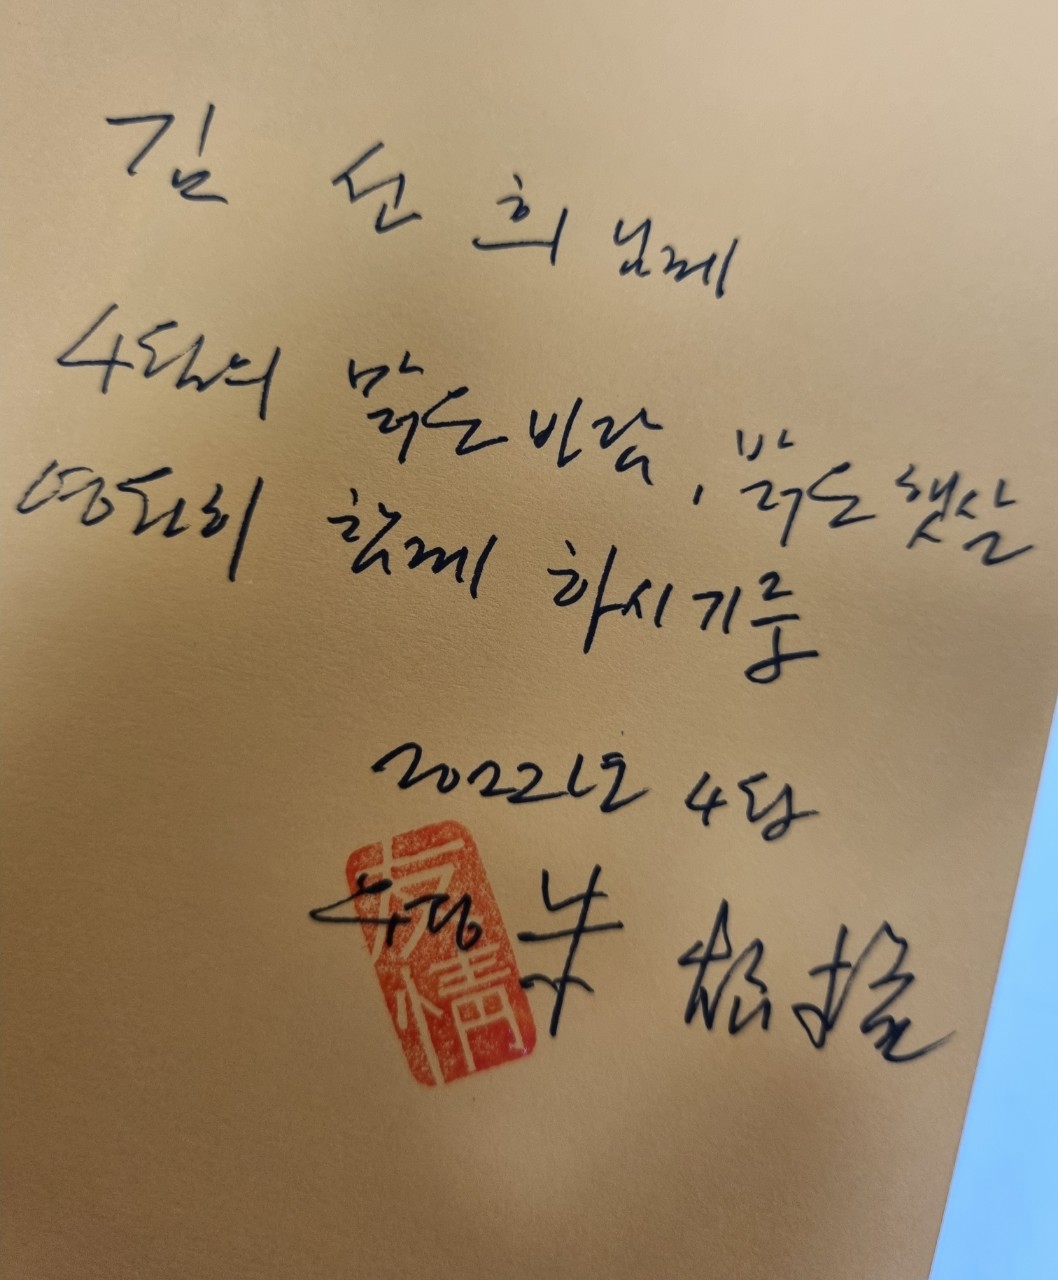 김 선 희 님께
4월의 맑은 바람, 밝은 햇살
영원히 함께 하시기를
2022년 4월
友情